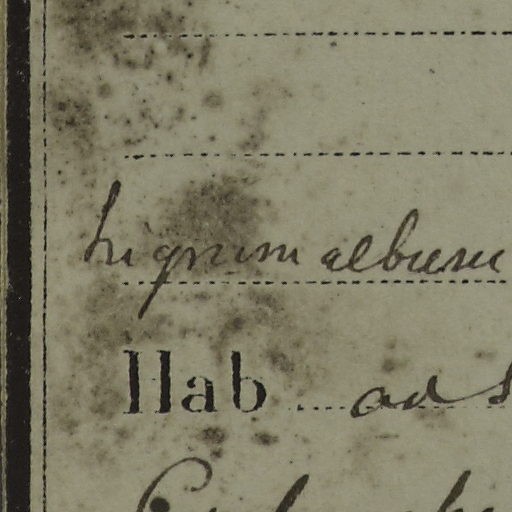 lignum album
Hab ad